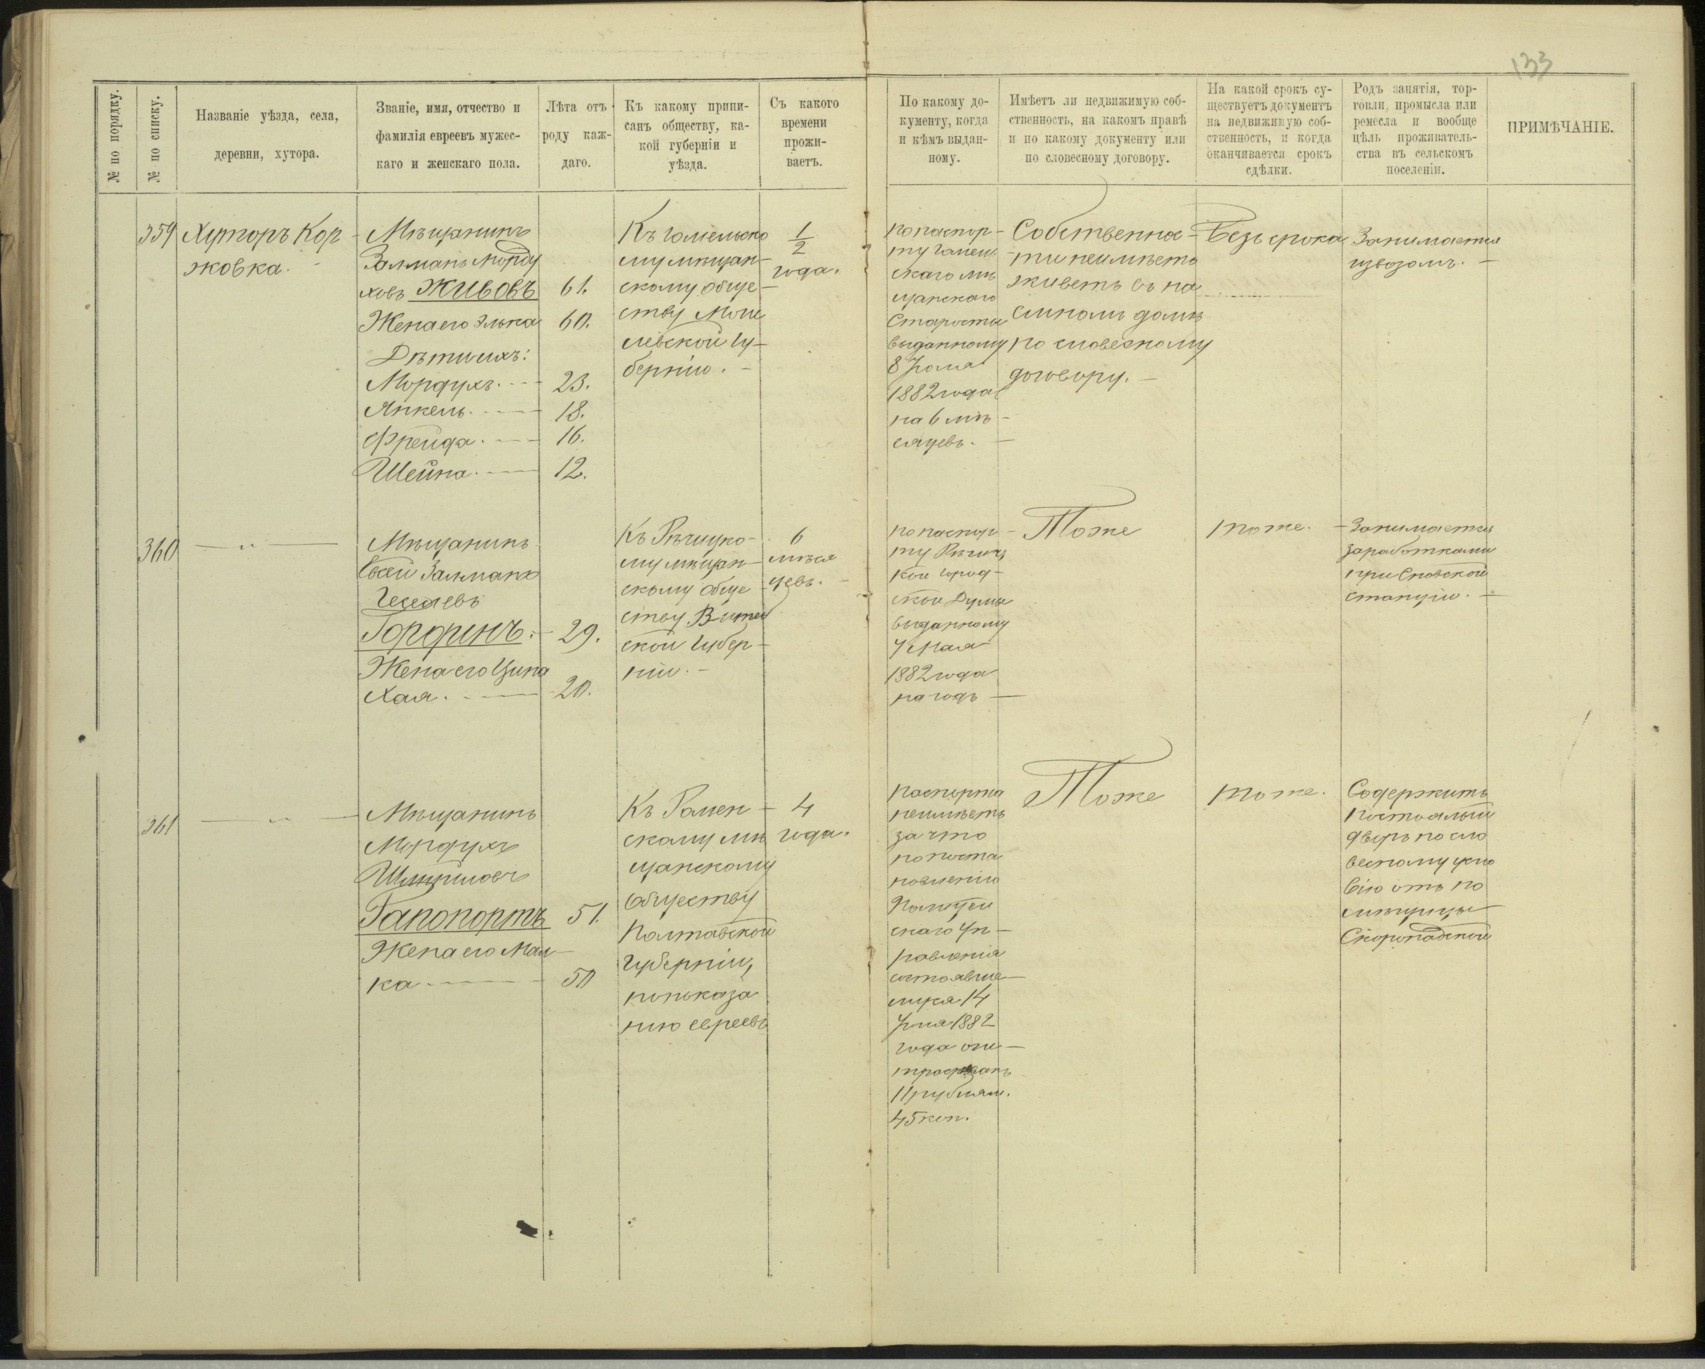 133
№ по порядку.
№ по списку.
Названіе уѣзда, села,
деревни, хутора.
Званіе, имя, отчество и
фамилія евреевъ мужес-
каго и женскаго пола.
Лѣта отъ
роду каж-
даго.
Къ какому припи-
санъ обществу, ка-
кой губерніи и
уѣзда.
Съ какого
времени
прожи-
ваетъ.
По какому до-
кументу, когда
и кѣмъ выдан-
ному.
Имѣетъ ли недвижимую соб-
ственность, на какомъ правѣ
и по какому документу или
по словесному договору.
На какой срокъ су-
ществуетъ документъ
на недвижимую соб-
ственность, и когда
оканчивается срокъ
сдѣлки.
Родъ занятія, тор-
говли, промысла или
ремесла и вообще
цѣль проживатель-
ства въ сельскомъ
поселеніи.
ПРИМѢЧАНІЕ.
359
Хуторъ Кор
жовка.
Мѣщанинъ
Залманъ Морду
ховъ Живовъ 61.
Жена его Элька 60.
Дѣти ихъ:
Мордухъ. 23.
Янкель. 18.
Фрейда. 16.
Шейна. 12.
Къ Гомельско
му мѣщан-
скому обще-
ству Моги
левской Гу-
берніи.
1/2
года.
по паспор-
ту Гомель
скаго мѣ
щанского
Старосты
выданному
8 Іюля
1882 года
на 6 мѣ-
сяцевъ.
Собственнос-
ти неимѣетъ
живетъ въ на
емномъ домѣ
по словесному
договору.
Безъ срока
Занимается
извозомъ.
360
Мѣщанинъ
Евсей Залманъ
Горфинъ. 29.
Жена его Ципа
Хая. 20.
Къ Рѣчицко-
му мѣщан-
скому обще
ству Витеб
ской Губер-
ніи.
6
мѣся
цевъ.
по паспор-
ту Рѣчиц
кой город-
ской Думы
выданному
7 Мая
1882 года
на годъ
Тоже
тоже.
Занимается
заработками
при Сновской
станціи.
361
Мѣщанинъ
Мордухъ
Гапопортъ 51.
Жена его Мал-
ка 50
Къ Ромен-
скому мѣ
щанскому
обществу
Полтавской
Губерніи,
по показа
нію евреевъ
4
года.
паспорта
неимѣетъ
за что
по поста
новленію
Полицей
скаго Уп-
равленія
состоявше-
муся 14
Іюля 1882
года ош-
трафованъ
11 рублям.
45 коп.
Тоже
тоже.
Содержитъ
постоялый
дворъ по сло
весному усло
вію отъ по
мѣщицы
Скоропадской